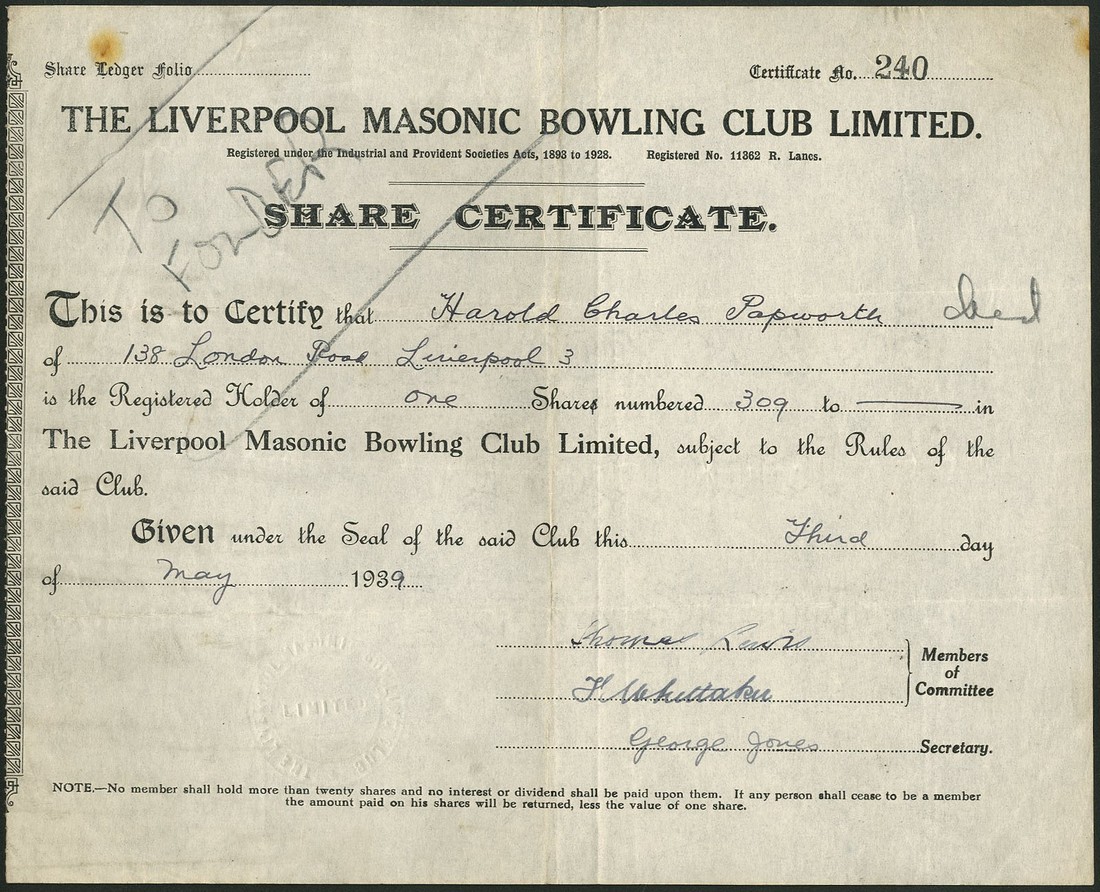 Share Ledger Folio
Certificate No. 240
THE LIVERPOOL MASONIC BOWLING CLUB LIMITED.
Registered under the Industrial and Provident Societies Acts, 1893 to 1928. Registered No. 11362 R. Lancs.
TO
SHARE CERTIFICATE.
This is to Certify that Harold Charles Papworth
of 138 London Road Liverpool 3
is the Registered Holder of one Shares numbered 309 to — in
The Liverpool Masonic Bowling Club Limited, subject to the Rules of the
said Club.
Given under the Seal of the said Club this Third day
of May 1939
Thomas Lewis
Members
of
Committee
H Whittaker
George Jones Secretary.
LIMITED
NOTE.—No member shall hold more than twenty shares and no interest or dividend shall be paid upon them. If any person shall cease to be a member
the amount paid on his shares will be returned, less the value of one share.